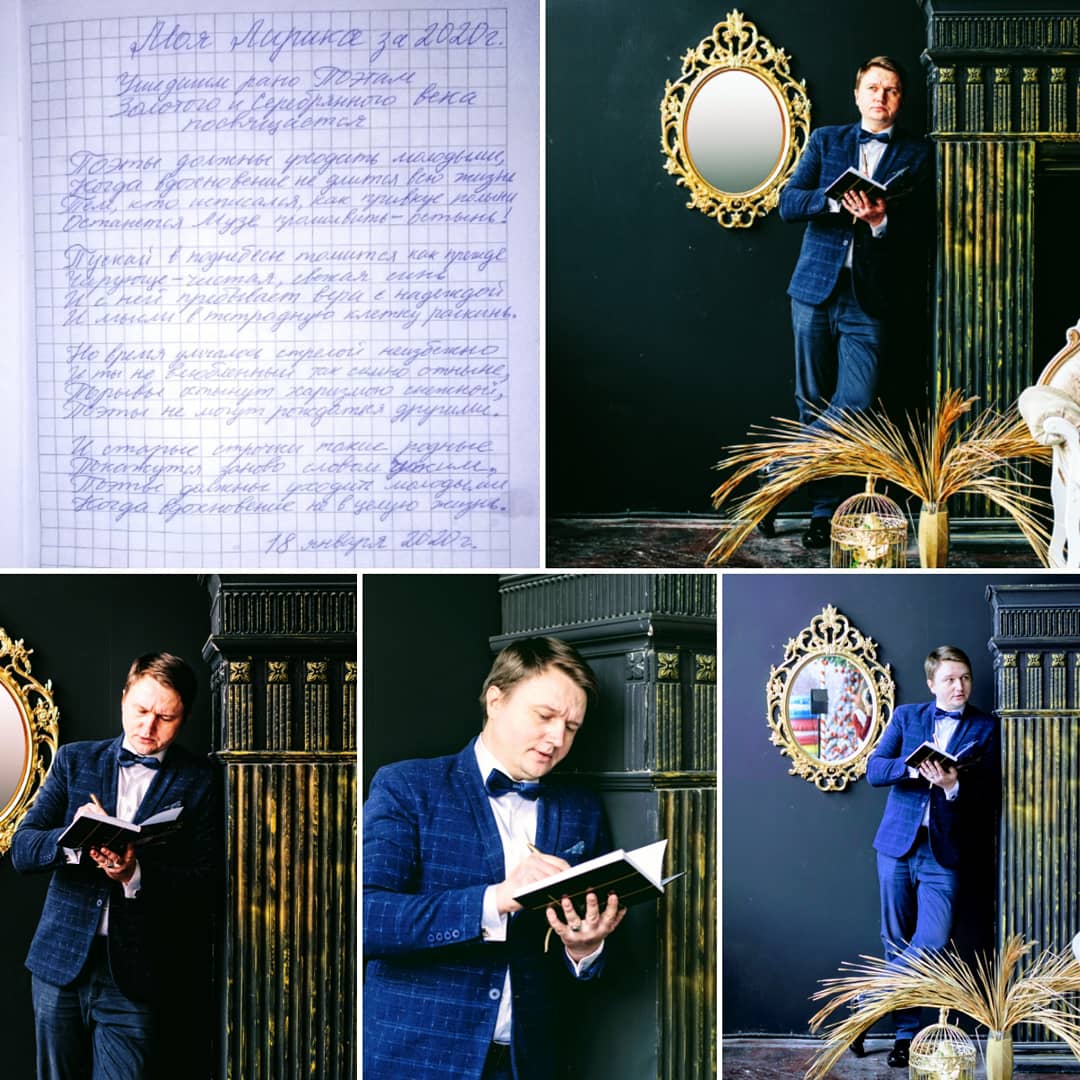 Моя Лирика за 2020г.
Ушедшим рано Поэтам
Золотого и Серебрянного века
посвящается
Поэты должны уходить молодыми,
Когда вдохновение не длится всю жизнь
Тем, кто исписался, как привкус полыни
Останется Музе промолвить - остынь!
Пускай в поднебесье томится как прежде
Чарующе - чистая, свежая синь
И с ней пребывает вера с надеждой
И мысли в тетрадную клетку раскинь.
Но время умчалось стрелой неизбежно
И ты не влюбленный так сильно отныне,
Порывы остынут харизмою снежной,
Поэты не могут рождаться другими.
И старые строчки такие родные
Покажутся заново словом чужим.
Поэты должны уходить молодыми
Когда вдохновение не в целую жизнь.
18 января 2020г.